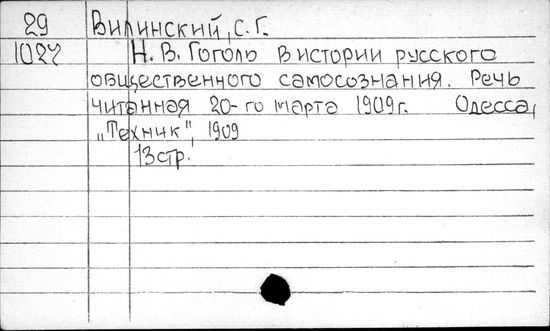 29 Вилинский, С. Г.
1027 Н. В. Гоголь в истории русского
общественного самосознания. Речь
читанная 20-го марта 1909 г. Одесса,
„Техник", 1909
13 стр.